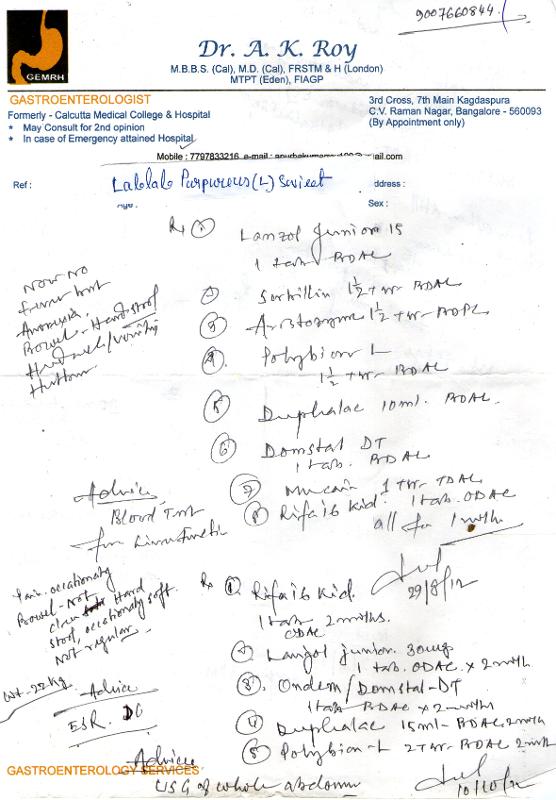 9007660844
GEMRH
Dr. A. K. Roy
M.B.B.S. (Cal), M.D. (Cal), FRSTM & H (London)
MTPT (Eden), FIAGP
GASTROENTEROLOGIST
Formerly - Calcutta Medical College & Hospital
* May Consult for 2nd opinion
* In case of Emergency attained Hospital
3rd Cross, 7th Main Kagdaspura
C.V. Raman Nagar, Bangalore - 560093
(By Appointment only)
Mobile : 7797833216 e-mail :
Ref :
Lablab Purpureus (L) Sweet
ddress :
Sex :
Rx ① Lanzol Junior 15
1 tab BDAC
Now no
fever but
Anorexia.
Bowel - Hard stool
② Sorbillin 1½ tsr BDAC
③ Aristozyme 1½ tsr BDPC
④ Polybion L
1½ tsr BDAC
⑤ Duphalac 10ml. BDAC.
⑥ Domstal DT
1 tab. BDAC
⑦ Mucain 1 tsr TDAC
⑧ Rifa i6 Kid. 1 tab. ODAC
all for 1 mth
Advice
Blood Test
for Liver Function
29/8/12
Pain. occationaly
Bowel - Not
clear Hard
stool, occationaly soft.
Not regular.
Wt. - 22 kg
Rx ① Rifa i6 Kid.
1 tab 2 mths.
ODAC
② Lanzol junior. 30mg
1 tab. ODAC x 2 mth
③. Ondem / Domstal-DT
1 tab BDAC x 2 mths
④ Duphalac 15ml - BDAC, 2 mth
⑤ Polybion-L 2 tsr BDAC 2 mth
Advice
ESR. DC
Advice
GASTROENTEROLOGY SERVICES
USG of whole abdomen
10/10/12